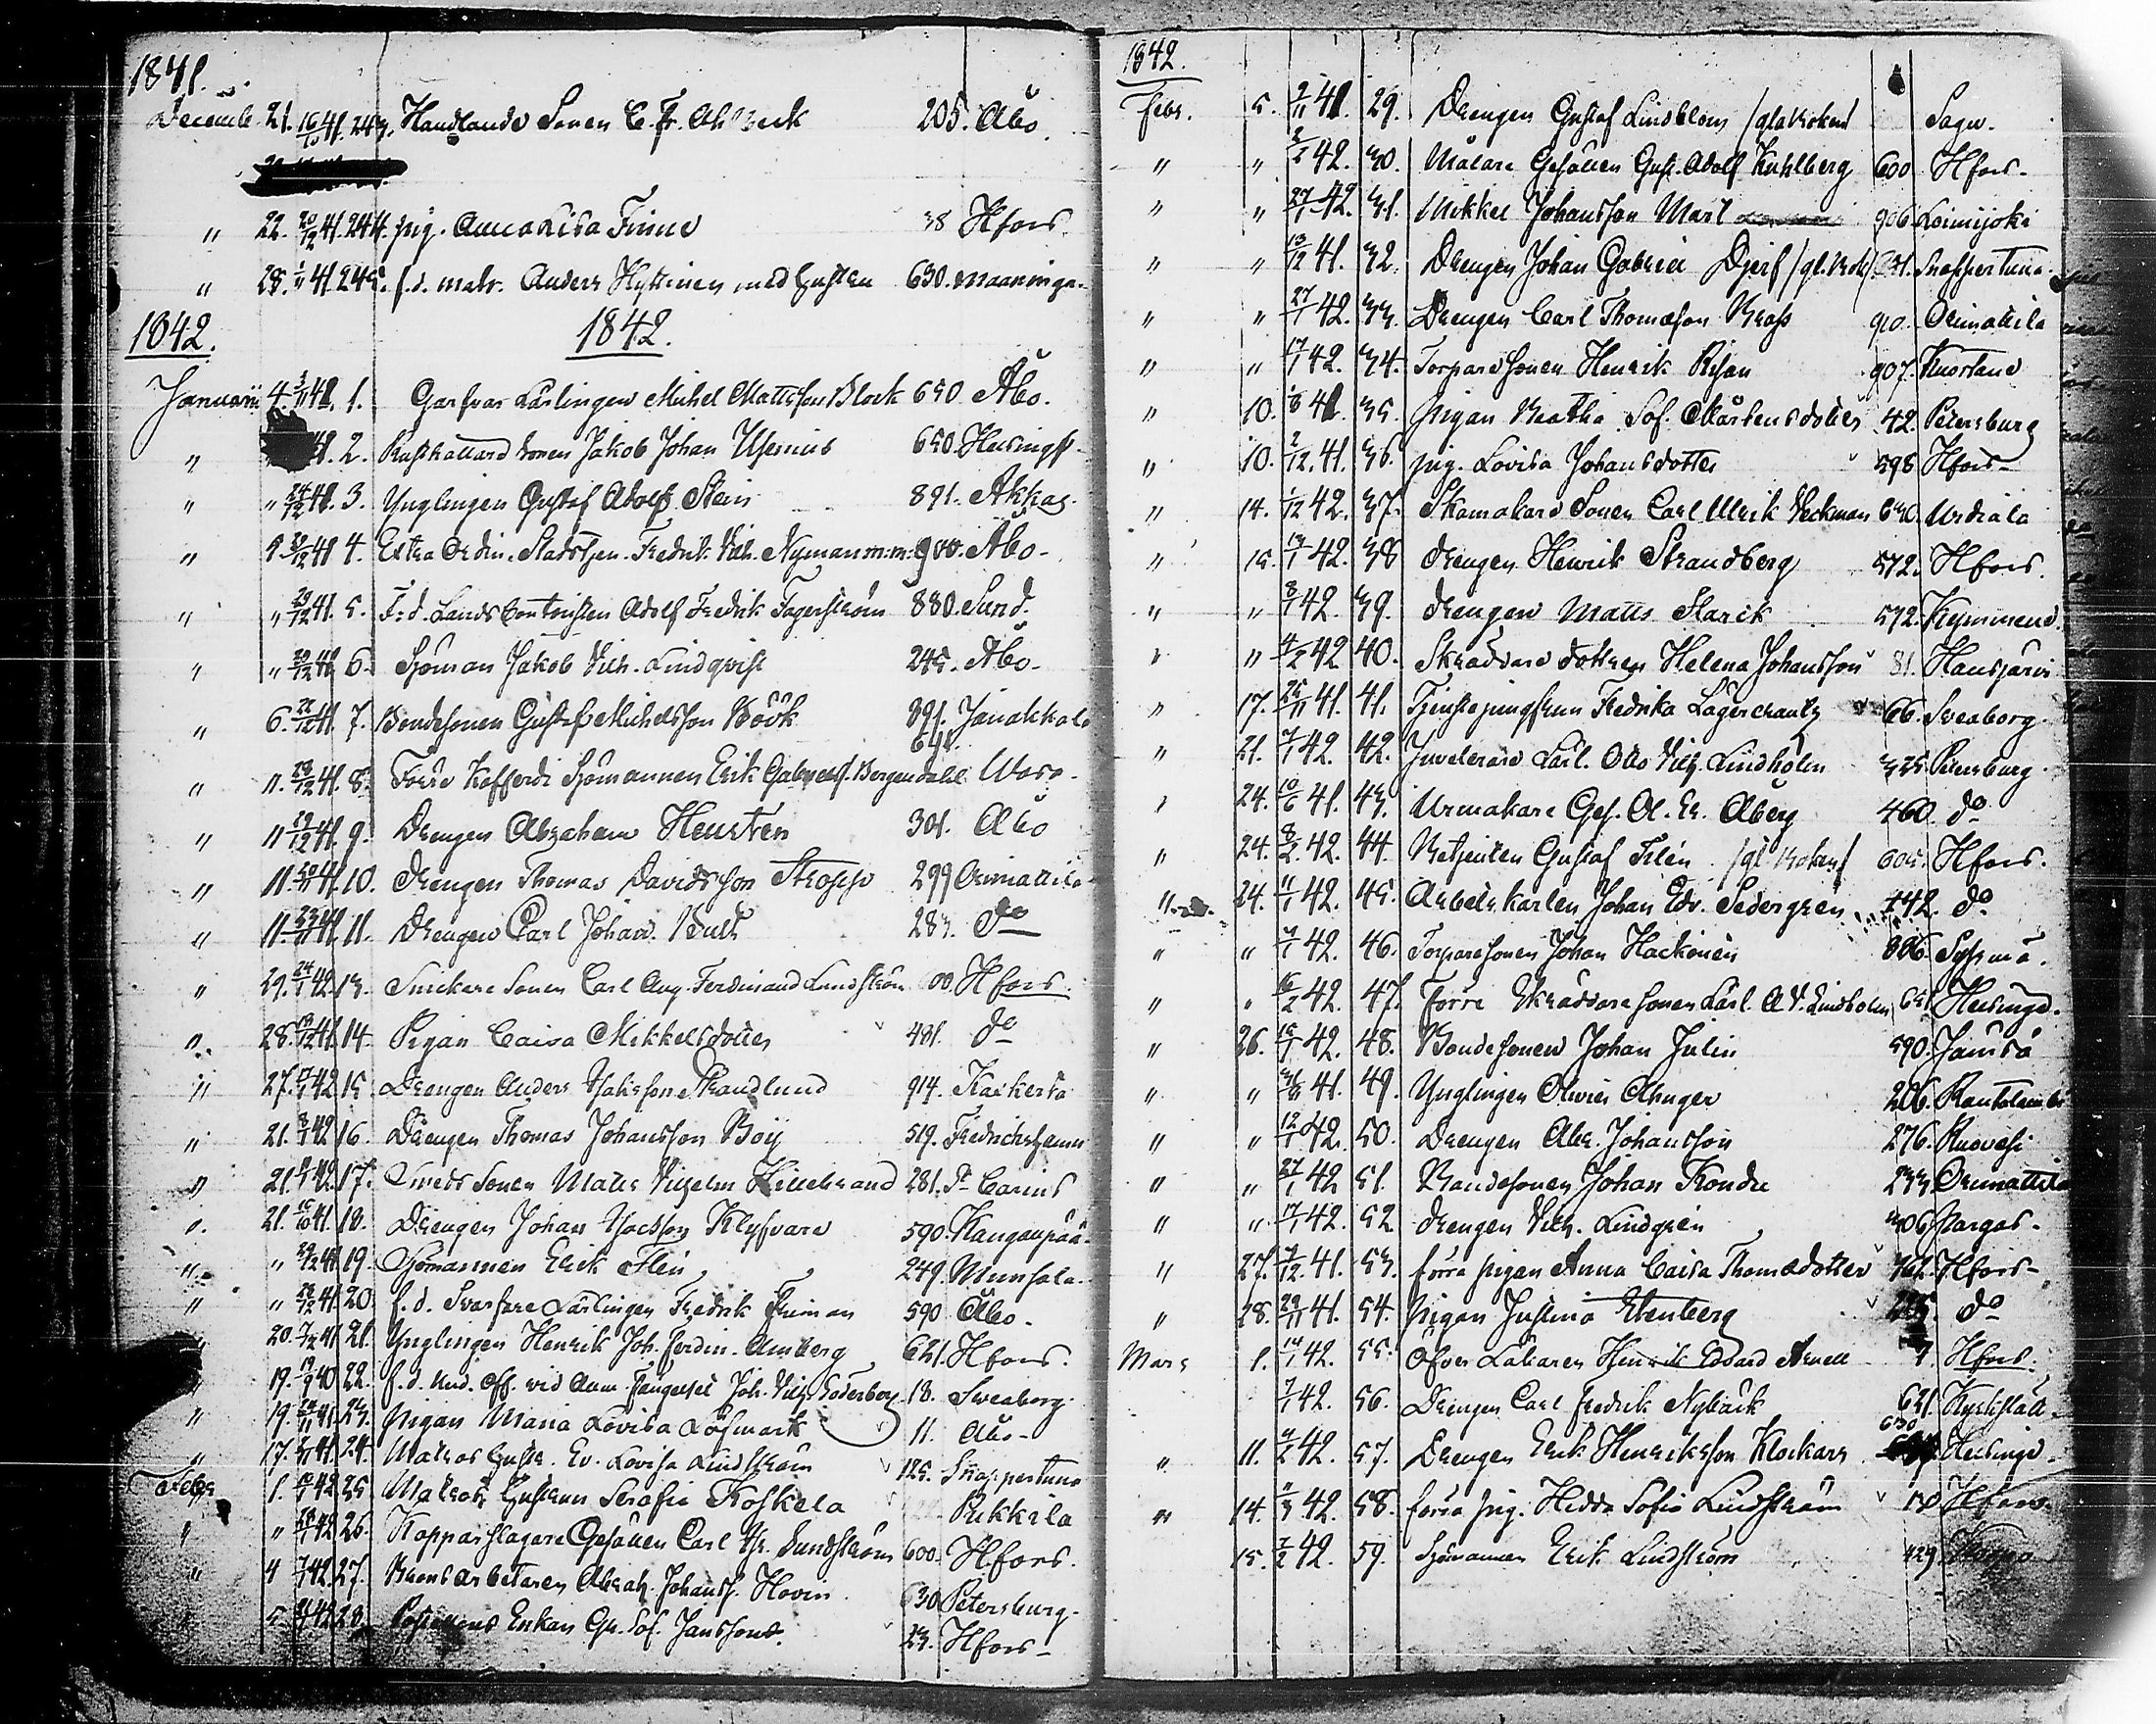 1841.
Decemb. 21. 16/10 41. 243. Handlande Sonen C. Fr. Ahlbeck 205. Åbo
" 22. 20/12 41. 244. pig. Anna Lisa Finne 38 Hfors.
" 28. 41. 245. f.d. matr. Anders Hyttinen med hustru 630. Maaninga.
1842. 1842.
Januarii 4. 41. 1. Garfvar Lärlingen Michel Mattsson Block 650 Åbo.
" 41. 2. Rusthållard sonen Jakob Johan 650. Helsingf.
" " 24/12 41. 3. Ynglingen Gustaf Adolf Stein 891. Akkas.
" 9 30/12 41 4. Extra Ordin. Stadstjen. Fredrik Vilh. Nyman m.m. 900. Åbo.
" " 23/12 41. 5. F:d. Lands Contristen Adolf Fredrik Fagerström 880. Sund.
" " 20/12 41 6. Sjöman Jakob Vilh. Lindqvist 245. Åbo.
" 6. 41. 7. Bondesonen Gustaf Michelsson Böök 891. Janakkala
" 11. 28/12 41. 8. Förre Kofferdi Sjömannen Erik Gabrielss. Bergendahl 641. Wasa.
" 11 29/12 41. 9. Drengen Abraham Hensten 301. Åbo
" 11. 20/11 41. 10. Drengen Thomas Davidsson Stropp 299 Orimattila
" 11. 23/11 41. 11. Drengen Carl Johan 283. do
" 29. 24/1 42. 13. Snickare Sonen Carl Aug. Ferdinand Lundström 00. Hfors.
" 28. 41. 14. Pigan Caisa Mikkelsdotter 481. do
" 27. 17/1 42 15 Drengen Anders Isaksson Strandlund 914. Kaskerta
" 21. 8/1 42 16. Drengen Thomas Johansson Böij 519. Fredrichshamn
" 21. 42. 17. Smeds Sonen Matts Vilhelm Hillebrand 281. St Carins
" 21. 16/10 41. 18. Drengen Johan Isacsson Klyfvare 590. Kangaspää.
" " 29/12 41 19 Sjömannen Erik Flen 249. Munsala.
" " 28/12 41 20 f.d. Svarfare Lärlingen Fredrik Friman 590 Åbo.
" 20. 7/12 41 21. Ynglingen Henrik Joh. Ferdin. Amberg 621. Hfors.
" 19. 19/9 40 22. f.d. Und. Off. vid Arm. Fängelset Joh. Vilh. Söderberg 18. Sveaborg.
" 19. 41. 23. Pigan Maria Lovisa Löfmark 11. Åbo.
" 17. 41. 24. Matros Hustr. Ev. Lovisa Lindström 125. Snappertuna
Febr. 1. 42 25 Matros Hustrun Serafia Koskela Pukkila
" " 42 26. Kopparslagare Gesällen Carl Is. Sundström 600. Hfors.
" 4 7/1 42 27. Krons arbetaren Abrah. Johanss. Hovin 630 Petersburg.
5. 42 28. Enkan Gr. Sof. Jansson. 23. Hfors
1842.
Febr. 5. 2/11 41. 29. Drengen Gustaf Lindblom /gla kroken/ Sagu.
" " 2/2 42. 30. Målare Gesällen Gust. Adolf Kuhlberg 600 Hfors.
" " 27/1 42. 31. Mikkel Johansson Mart 906 Loimijoki
" " 13/12 41. 32. Drengen Johan Gabriel Djerf /gl. krok/ 231. Snappertuna.
" " 27/1 42. 33. Drengen Carl Thomasson Krass 910. Orimattila
" " 17/1 42. 34. Torparesonen Henrik 907. Kuortane
" 10. 41. 35. pigan Sof. Mårtensdotter 42. Petersburg
" 10. 2/12. 41. 36. pig. Lovisa Johansdotter 598 Hfors
" 14. 42. 37. Skomakare Sonen Carl Ulrik Veckman 630. Urdiala
" 15. 13/1 42. 38 drengen Henrik Strandberg 572. Hfors.
" " 8/1 42. 39. drengen Matts Starck 572. Kymmene.
" " 4/2 42 40. Skräddare dottren Helena Johansson 81. Hausjärvi
" 17. 25/11 41. 41. Tjenstejungfrun Fredrika Lagercrantz 66. Sveaborg.
" 21. 7/1 42. 42. Juvelerare Lärl. Otto Vilh. Lindholm 325. Petersburg.
" 24. 10/6 41. 43. Urmakare Ges. A. Er. Åberg 460. do
" 24. 8/2. 42. 44. Gustaf Filén /gl. kroken/ 605. Hfors.
" 24. 11/1 42. 45. Arbetskarlen Johan Edv. Sedergren 442. do
" " 7/1 42. 46. Torparesonen Johan Hackonen 886. Sysmä.
" " 16/2 42. 47. Förre Skräddaresonen Lärl. A.V. Lindholm 631 Helsinge.
" 26. 42. 48. Bondesonen Johan Julin 590. Jämsä
" " 41. 49. Ynglingen Oliver Ahnger 206. Rautalambi
" " 12/1 42. 50. Drengen Abr. Johansson 276. Ruovesi
" " 27/1 42 51. Bondesonen Johan Kondu 233 Orimattila
" " 17/1 42. 52 drengen Vilh. Lindgrén 306 Pargas.
" 27. 7/12. 41. 53. förra pigan Anna Caisa Thomasdotter 761. Hfors
" 28. 29/11 41. 54. pigan Justina Stenberg do
Mars 1. 14/1 42. 55. Öfver Läkaren Henrik Edvard Arnell 7. Hfors.
7/1 42. 56. Drengen Carl Fredrik Nybäck 621. Kyrkslätt.
" 11. 42. 57. Drengen Erik Henriksson Klockars 630 Helsinge.
" 14. 11/3 42. 58. förra pig. Hedda Sofia Lindström Hfors.
15. 2/2 42. 59. Sjömannen Erik Lindström 429. Korpo